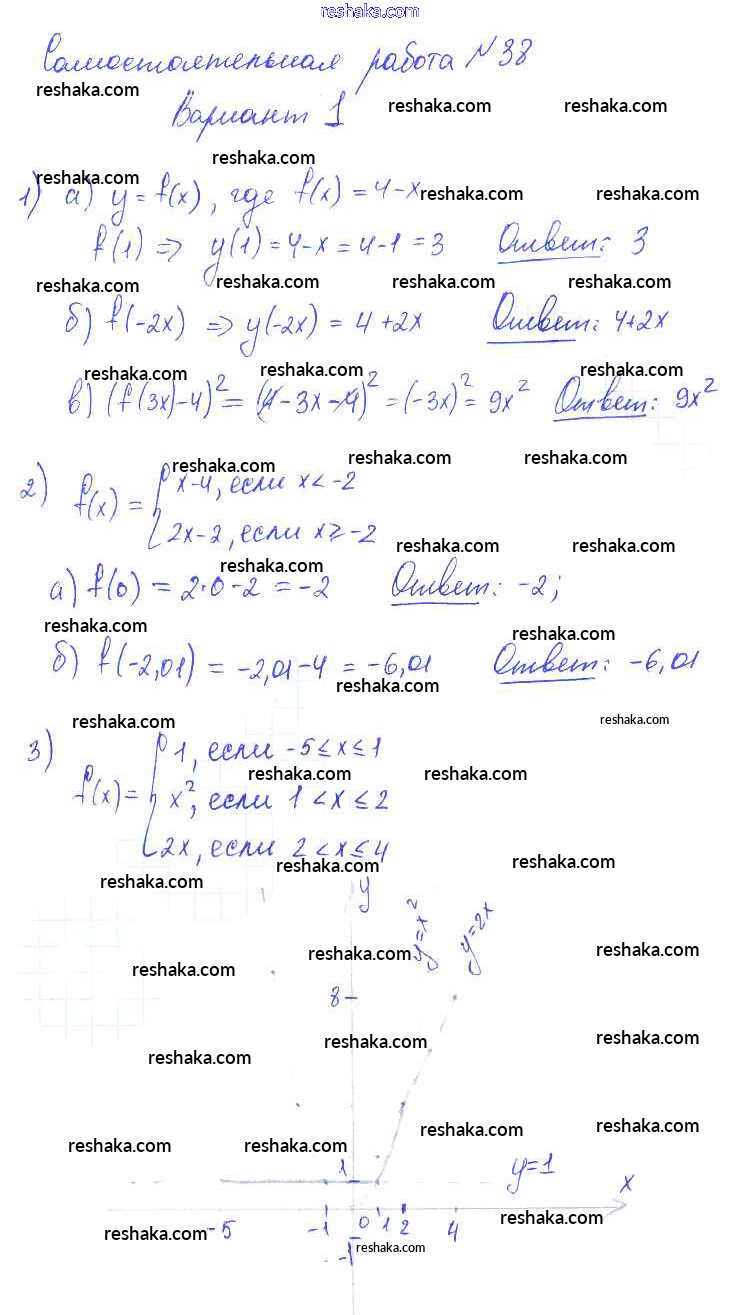 reshaka.com
Самостоятельная работа №38
reshaka.com reshaka.com reshaka.com
Вариант 1
reshaka.com
reshaka.com reshaka.com reshaka.com
1) а) y = f(x), где f(x) = 4-x
f(1) => y(1) = 4-x = 4-1 = 3 Ответ: 3
reshaka.com reshaka.com reshaka.com reshaka.com
б) f(-2x) => y(-2x) = 4+2x Ответ: 4+2x
reshaka.com reshaka.com reshaka.com
в) (f(3x)-4)² = (4-3x-4)² = (-3x)² = 9x² Ответ: 9x²
reshaka.com reshaka.com reshaka.com
2) f(x) = { x-4, если x < -2
2x-2, если x ≥ -2
reshaka.com reshaka.com reshaka.com
а) f(0) = 2·0-2 = -2 Ответ: -2;
reshaka.com reshaka.com
б) f(-2,01) = -2,01-4 = -6,01 Ответ: -6,01
reshaka.com
reshaka.com reshaka.com
3) f(x) = { 1, если -5 ≤ x ≤ 1
reshaka.com reshaka.com
x², если 1 < x ≤ 2
2x, если 2 < x ≤ 4
reshaka.com reshaka.com reshaka.com
y y=x² y=2x
reshaka.com reshaka.com reshaka.com
8
reshaka.com reshaka.com reshaka.com
reshaka.com reshaka.com reshaka.com reshaka.com
1 y=1 x
-5 -1 0 1 2 4
reshaka.com reshaka.com
-1 reshaka.com